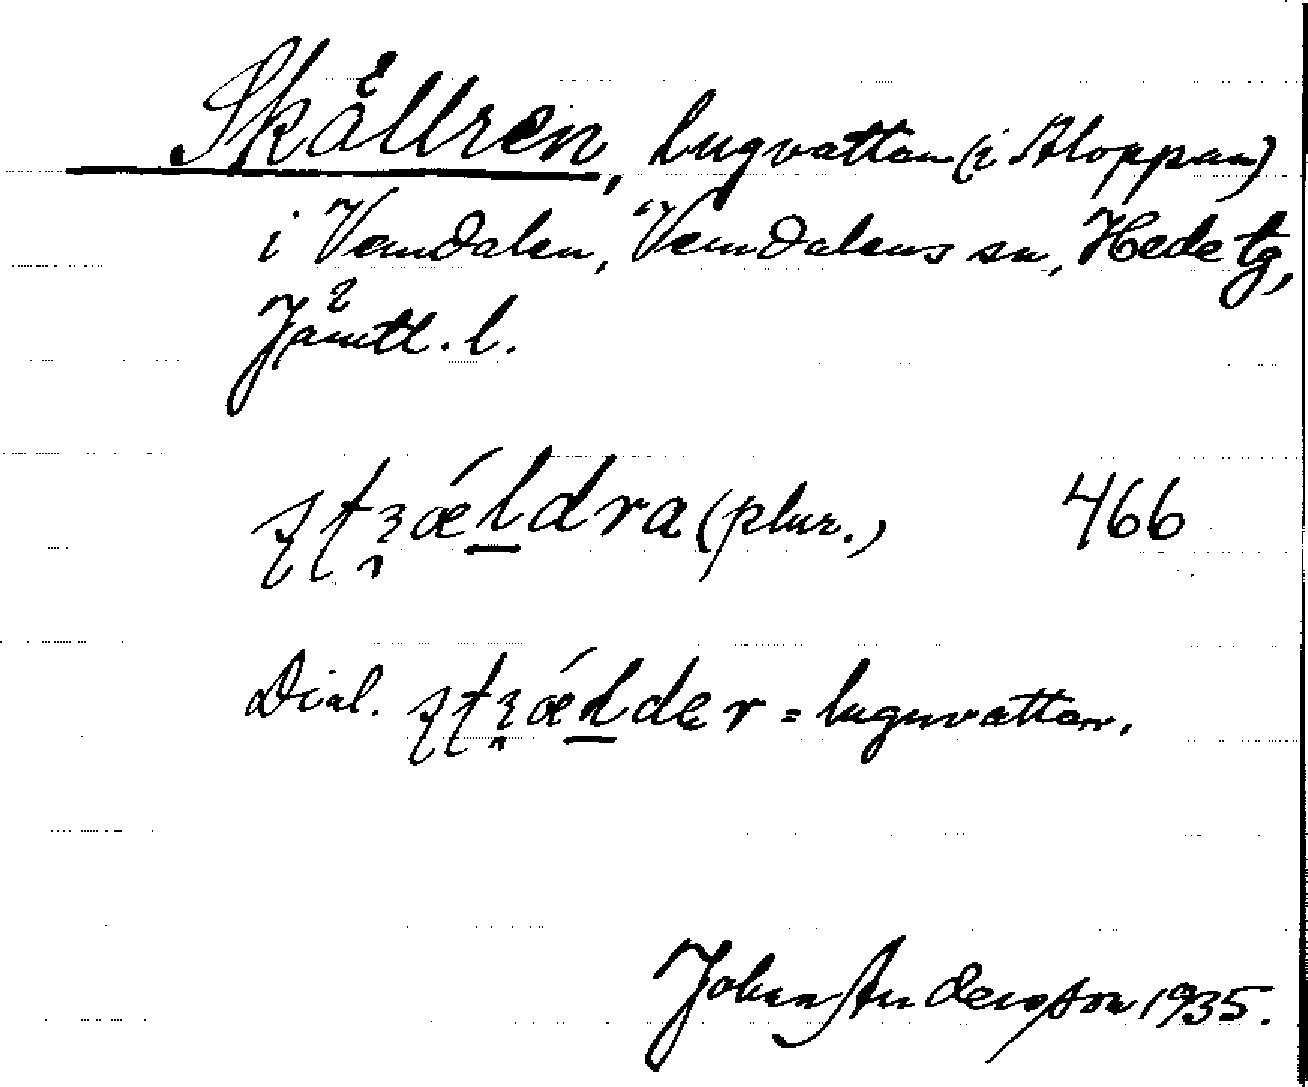 Skällren, lugvatten (i Aloppan)
i Vemdalen, Vemdalens sn, Hede tg,
Jämtl. l.
(plur.) 466
Dial. = lugnvatten.
Johan Andersson 1935.